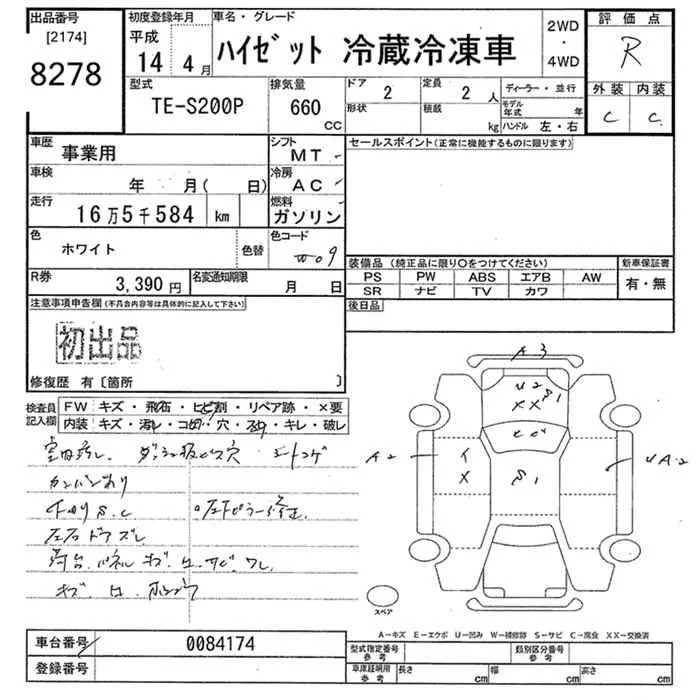 出品番号
[2174]
8278
初度登録年月
平成
14 4月
車名・グレード
ハイゼット 冷蔵冷凍車
2WD
・
4WD
評価点
R
外装 内装
C C
型式
TE-S200P
排気量
660
CC
ドア 2
形状
定員 2 人
積載 kg
ディーラー・並行
モデル年式 年
ハンドル 左・右
車歴 事業用
シフト MT
車検 年 月( 日)
冷房 AC
走行 16万5千584 km
燃料 ガソリン
色 ホワイト 色替
色コード W09
R券 3,390円
名変通知期限 月 日
セールスポイント(正常に機能するものに限ります)
装備品 (純正品に限り○をつけてください)
PS PW ABS エアB AW
SR ナビ TV カワ
新車保証書
有・無
後日品
注意事項申告欄(不具合内容等は具体的に記入して下さい)
初出品
修復歴 有〔箇所 〕
検査員
記入欄
FW キズ・飛石・ヒビ割・リペア跡・×要
内装 キズ・汚レ・コゲ・穴・スリ・キレ・破レ
カンバンあり
下回りS.C
左右ドアズレ
A3
U2
XX
S1
A2
S1
UA2
スペア
A－キズ E－エクボ U－凹み W－補修跡 S－サビ C－腐食 XX－交換済
車台番号 0084174
登録番号
型式指定番号
参考
類別区分番号
参考
車庫証明用
参考
長さ cm 幅 cm 高さ cm